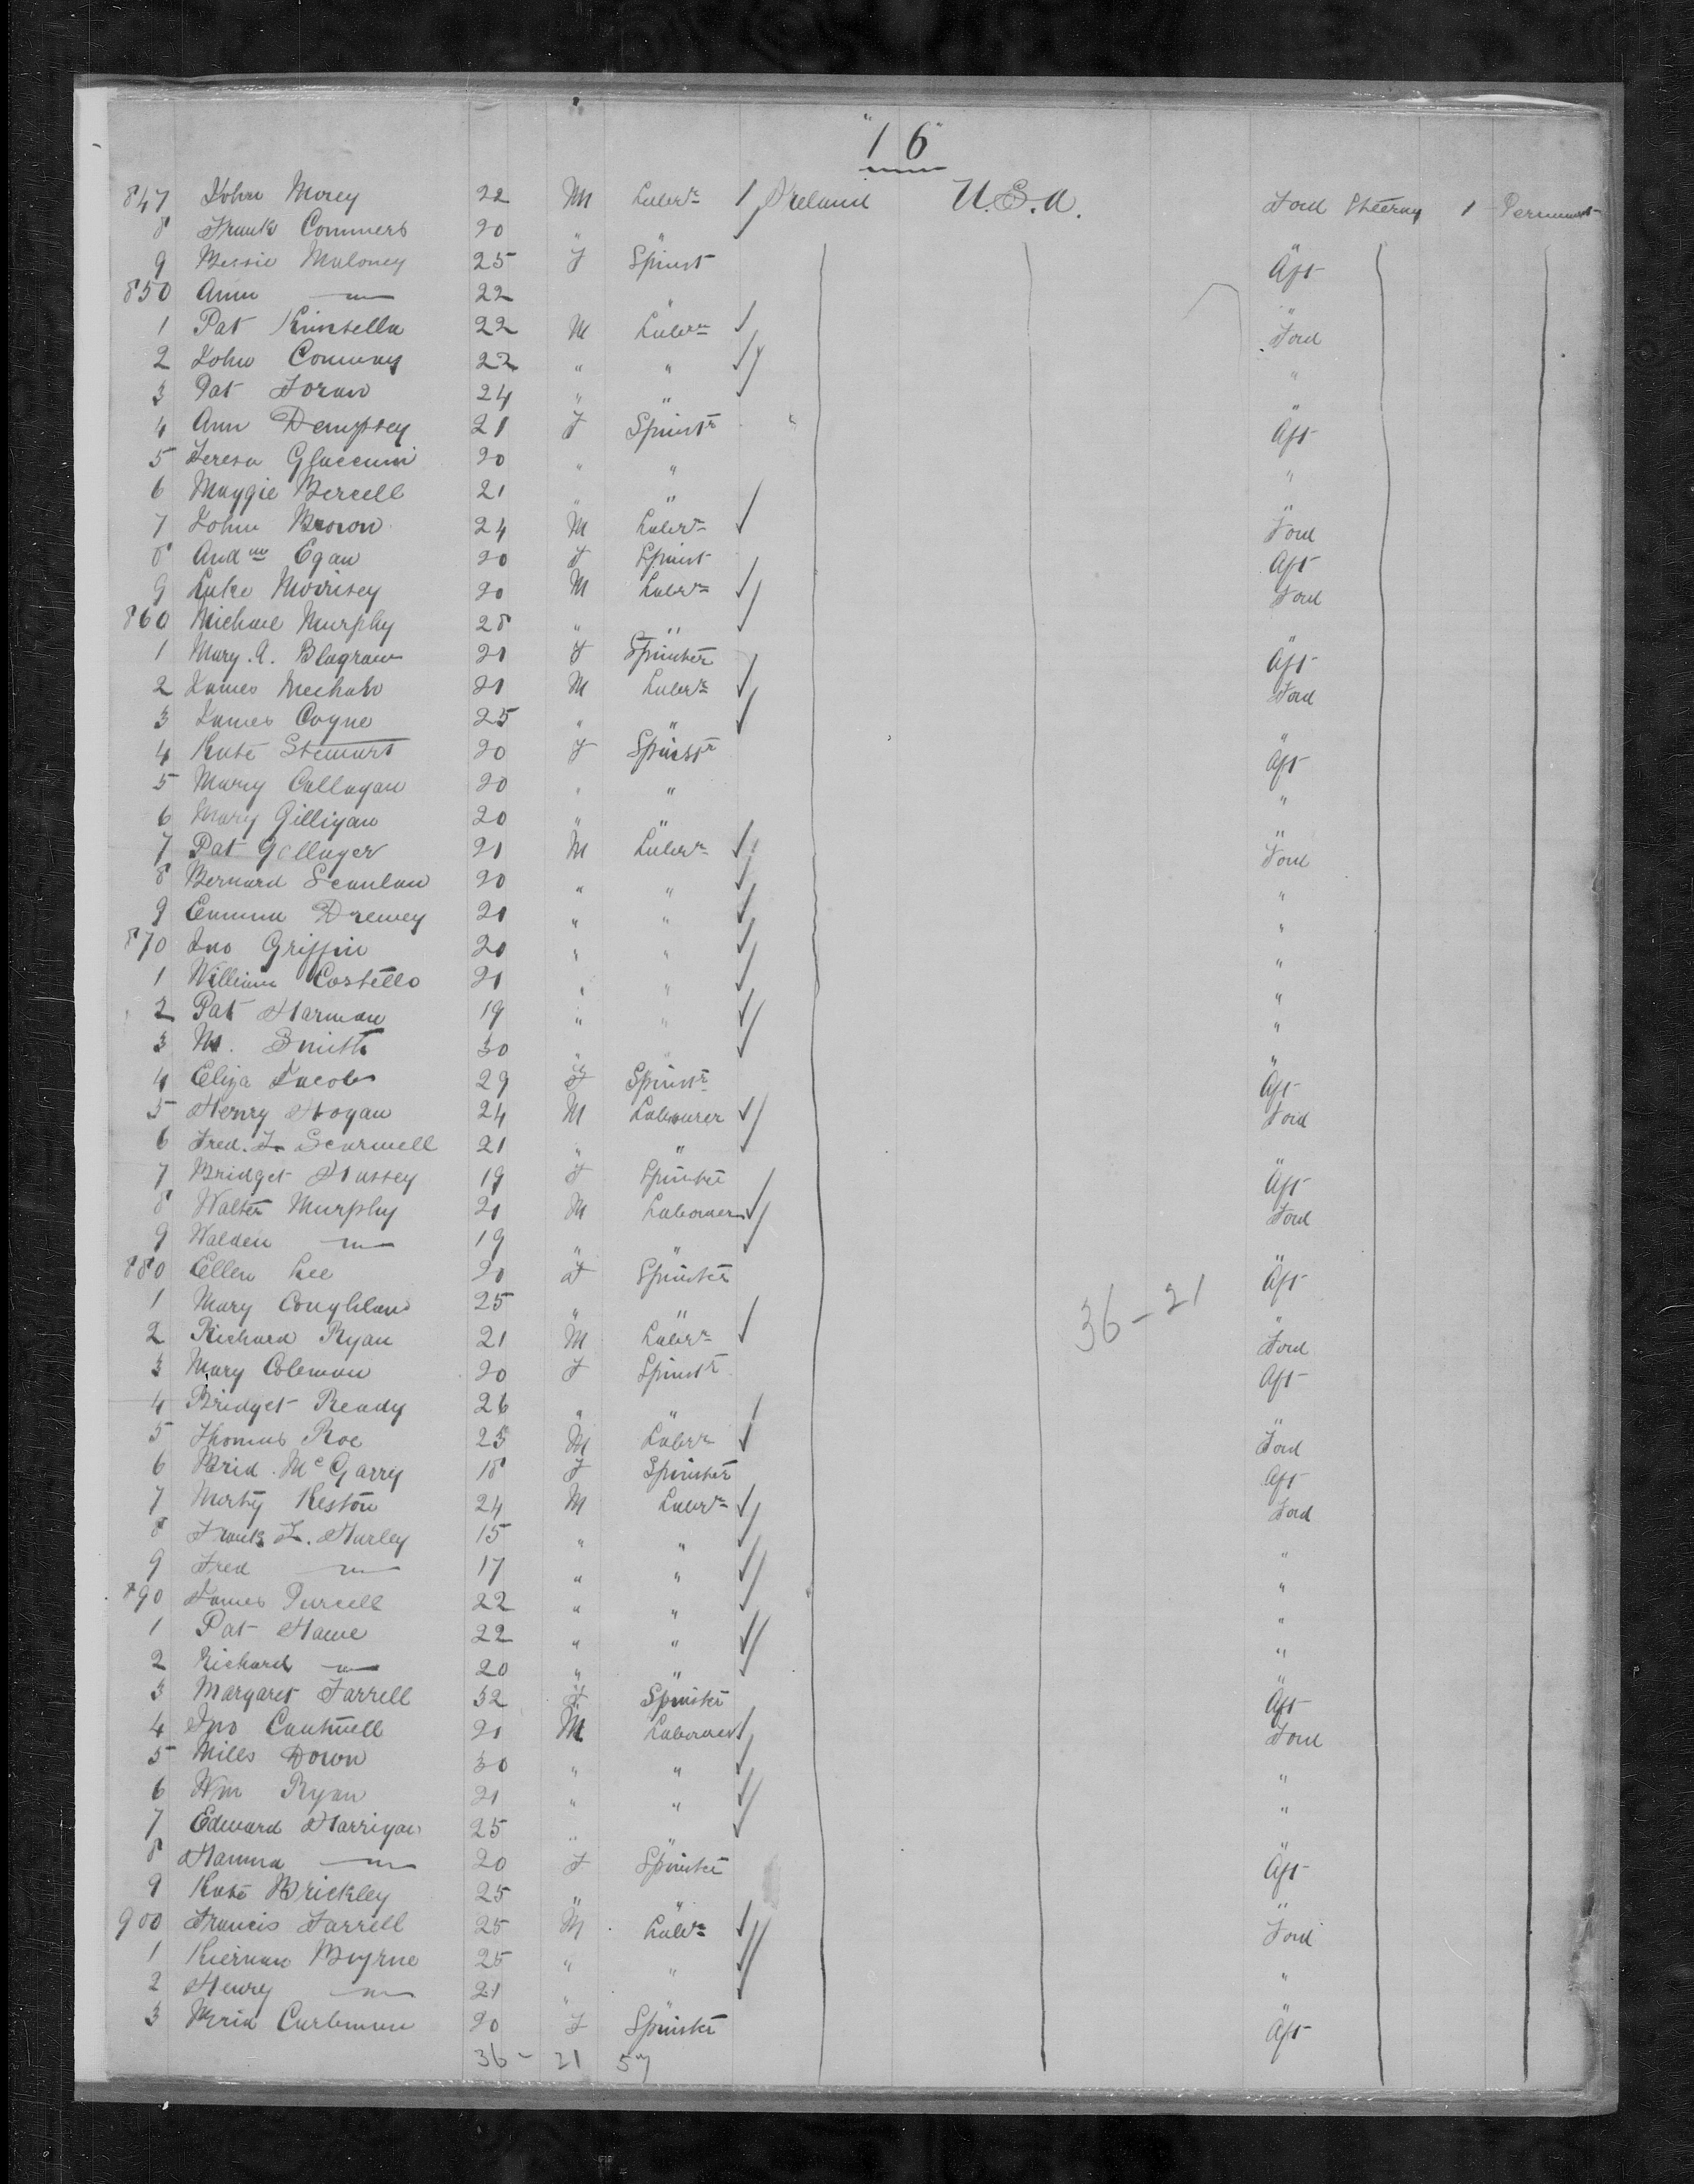 "16"
847 John Morey 22 M Labr 1 Ireland U.S.A. Ford Steerag 1 Permanent
8 Frank Commers 20 " "
9 Bessie Maloney 25 F Spinst Aft
850 Ann — 22 " "
1 Pat Kinsella 22 M Labr Ford
2 John Conway 22 " " "
3 Pat Foran 24 " " "
4 Ann Dempsey 21 F Spinstr Aft
5 Teresa Glaccum 20 " " "
6 Maggie Bercell 21 " " "
7 John Brown 24 M Labr Ford
8 And Egan 20 F Spinst Aft
9 Luke Morrisey 20 M Labr Ford
860 Michael Murphy 28 " " "
1 Mary. A. Blagrave 21 F Spinster Aft
2 James Meehan 21 M Labr Ford
3 James Coyne 25 " " "
4 Kate Stewart 20 F Spinstr Aft
5 Mary Callagan 20 " " "
6 Mary Gilligan 20 " " "
7 Pat Gallager 21 M Labr Ford
8 Bernard Scanlan 20 " " "
9 Emma Drewey 21 " " "
870 Jno Griffin 20 " " "
1 William Costello 21 " " "
2 Pat Harman 19 " " "
3 M. Smith 30 " " "
4 Eliza Jacobs 29 F Spinstr Aft
5 Henry Hogan 24 M Labourer Ford
6 Fred. J. Scarwell 21 " " "
7 Bridget Hassey 19 F Spinster Aft
8 Walter Murphy 21 M Labourer Ford
9 Walden — 19 " " "
880 Ellen Lee 20 F Spinster Aft
1 Mary Coughlan 25 " " "
36-21
2 Richard Ryan 21 M Labr Ford
3 Mary Coleman 20 F Spinstr Aft
4 Bridget Ready 26 " "
5 Thomas Roe 25 M Labr Ford
6 Brid. McGarry 18 F Spinster Aft
7 Morty Keston 24 M Labr Ford
8 Frank L. Hurley 15 " " "
9 Fred — 17 " " "
890 James Purcell 22 " " "
1 Pat Hawe 22 " " "
2 Richard — 20 " " "
3 Margaret Farrell 32 F Spinster Aft
4 Jno Cantwell 21 M Labourer Ford
5 Mills Down 30 " " "
6 Wm Ryan 21 " " "
7 Edward Harrigan 25 "
8 Hanna — 20 F Spinster Aft
9 Kate Brickley 25 " " "
900 Francis Farrell 25 M Labr Ford
1 Kiernan Byrne 25 " " "
2 Henry — 21 "
3 Brid 20 F Spinster Aft
36- 21 57